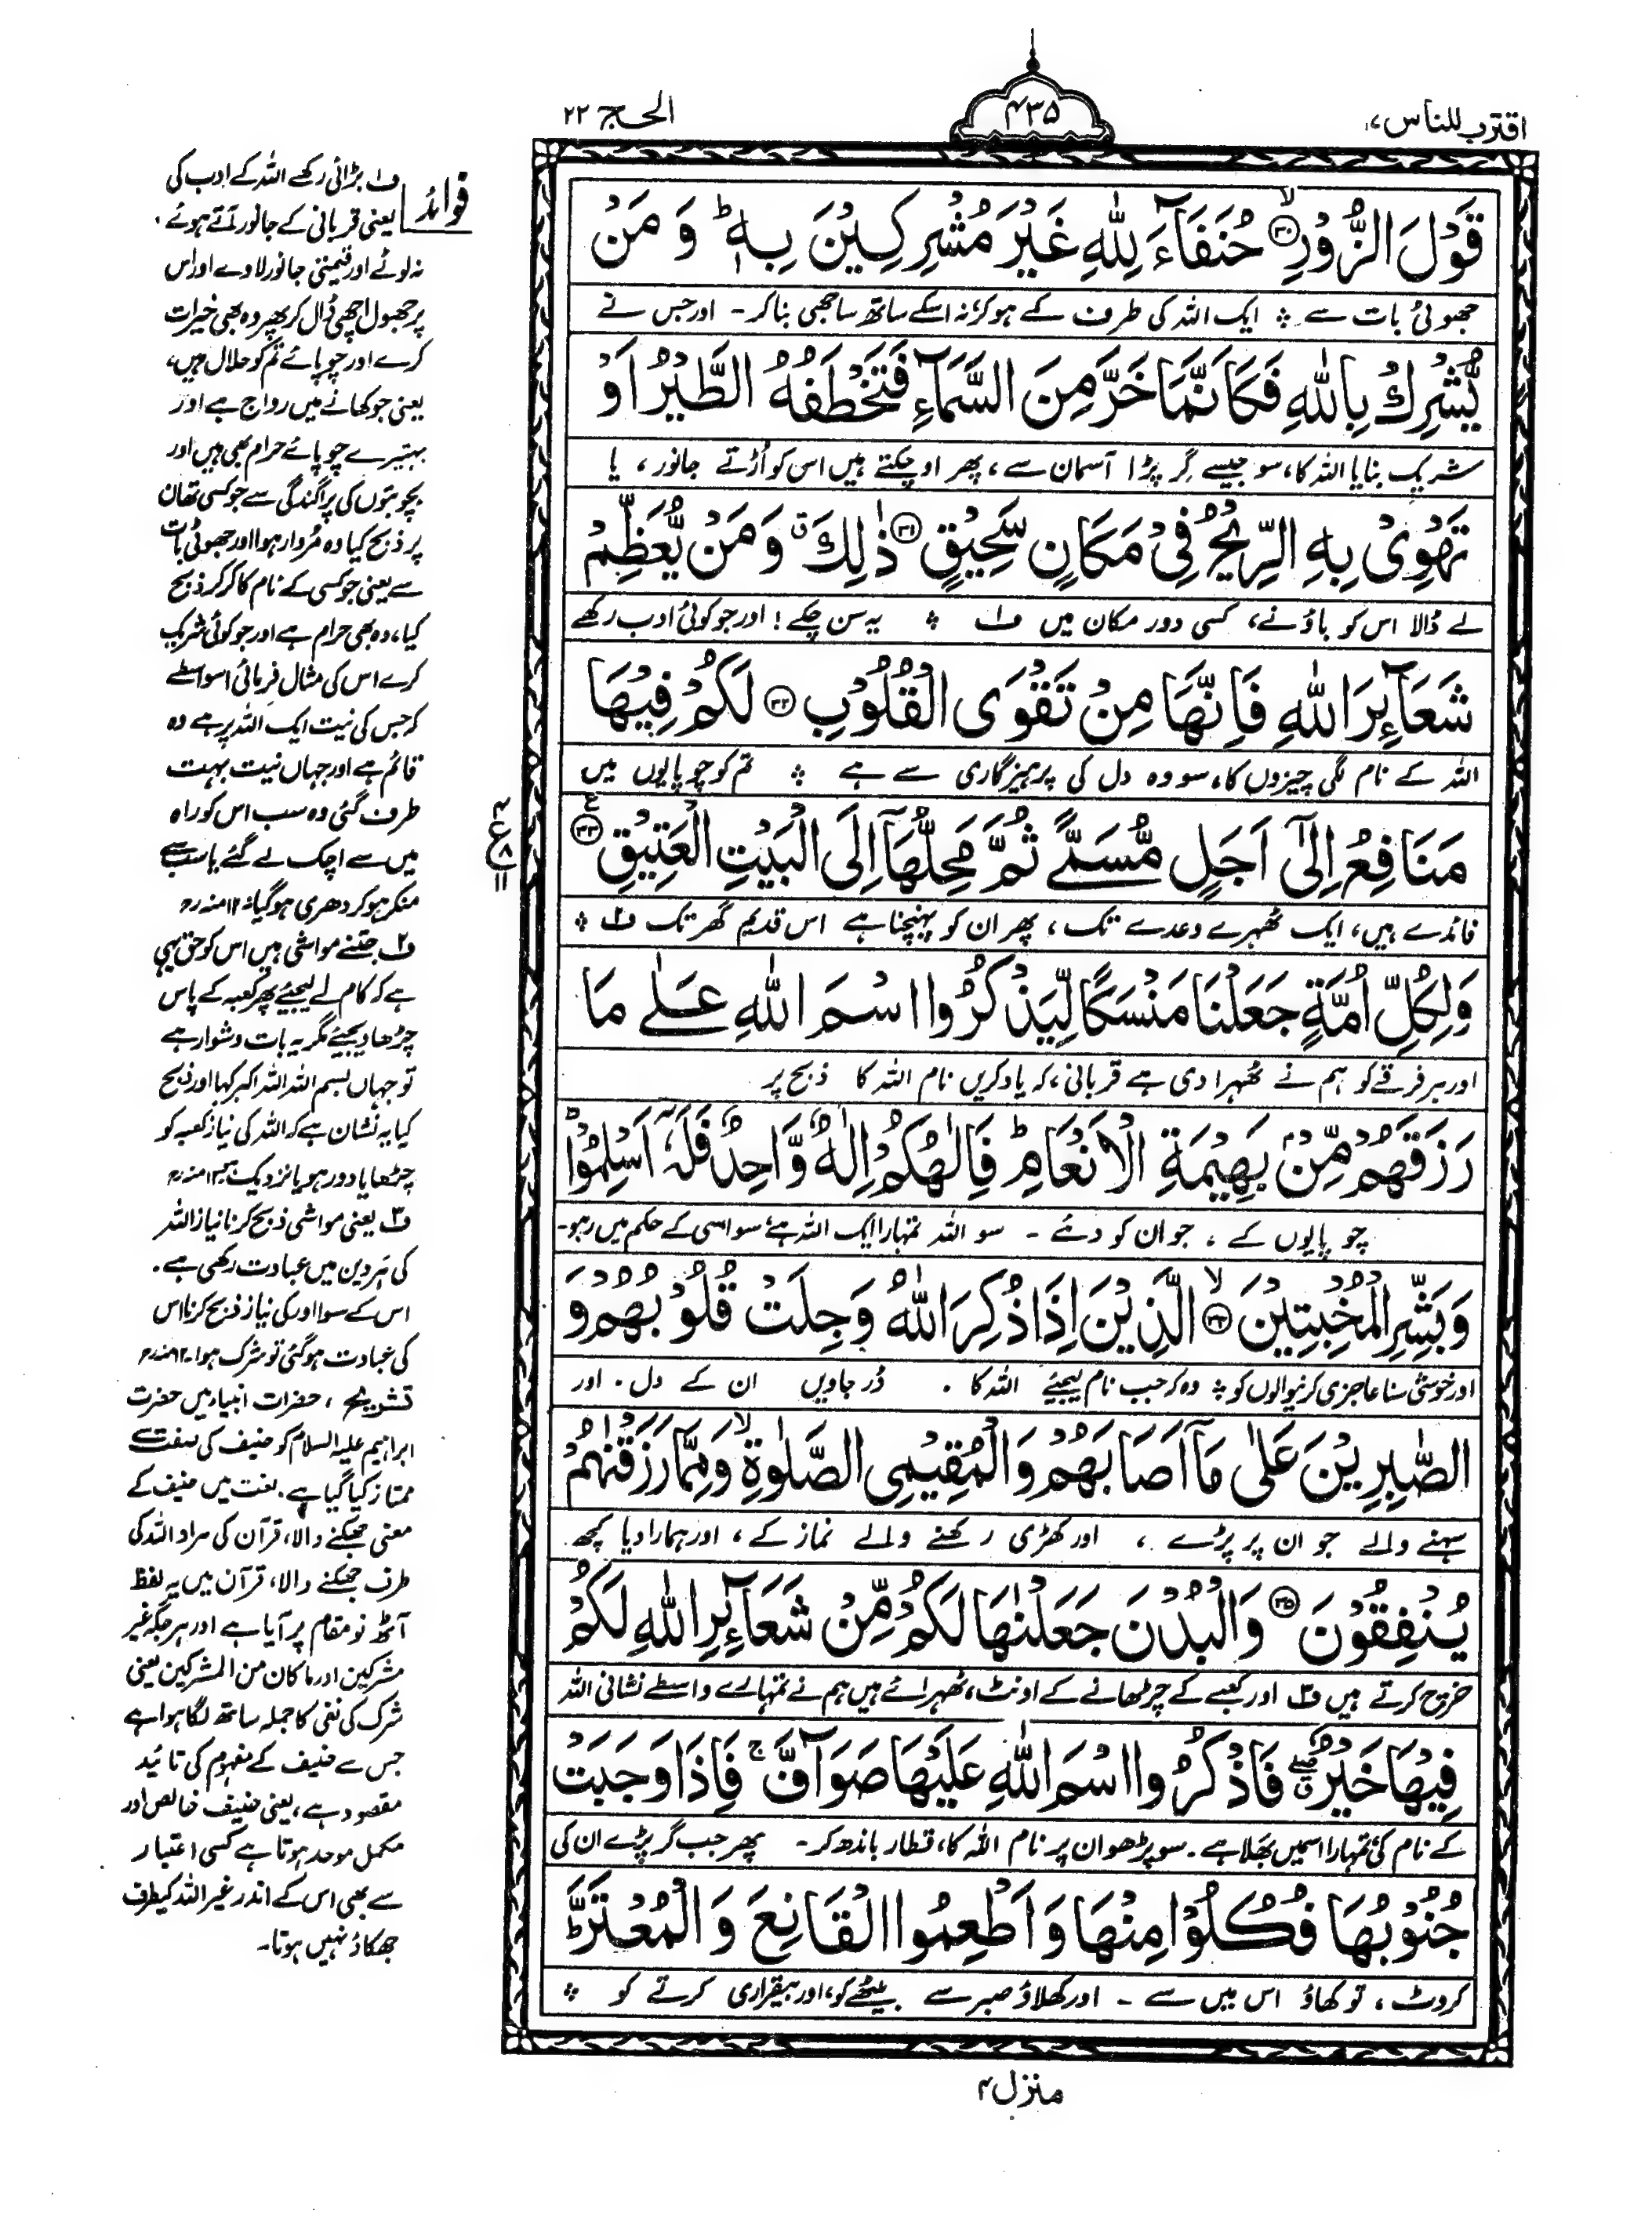 اقترب للناس ۱۷
۴۳۵
الحج ۲۲
قَوْلَ الزُّوْرِ ۙ۳۰ حُنَفَآءَ لِلّٰهِ غَيْرَ مُشْرِكِيْنَ بِهٖ ؕ وَ مَنْ
جھوٹی بات سے ۞ ایک اللہ کی طرف کے ہو کر، نہ اسکے ساتھ ساجھی بنا کر - اور جس نے
يُّشْرِكْ بِاللّٰهِ فَكَاَنَّمَا خَرَّ مِنَ السَّمَآءِ فَتَخْطَفُهُ الطَّيْرُ اَوْ
شریک بنایا اللہ کا، سو جیسے گر پڑا آسمان سے، پھر اوچکتے ہیں اس کو اُڑتے جانور، یا
تَهْوِيْ بِهِ الرِّيْحُ فِيْ مَكَانٍ سَحِيْقٍ ۳۱ ذٰلِكَ ۗ وَمَنْ يُّعَظِّمْ
لے ڈالا اس کو باؤ نے، کسی دور مکان میں ف۱ ۞ یہ سن چکے! اور جو کوئی ادب رکھے
شَعَآئِرَ اللّٰهِ فَاِنَّهَا مِنْ تَقْوَى الْقُلُوْبِ ۳۲ لَكُمْ فِيْهَا
اللہ کے نام لگی چیزوں کا، سو وہ دل کی پرہیزگاری سے ہے ۞ تم کو چوپایوں میں
مَنَافِعُ اِلٰٓى اَجَلٍ مُّسَمًّى ثُمَّ مَحِلُّهَآ اِلَى الْبَيْتِ الْعَتِيْقِ ۳۳ ع
فائدے ہیں، ایک ٹھہرے وعدے تک، پھر ان کو پہنچنا ہے اس قدیم گھر تک ف۲ ۞
وَلِكُلِّ اُمَّةٍ جَعَلْنَا مَنْسَكًا لِّيَذْكُرُوا اسْمَ اللّٰهِ عَلٰى مَا
اور ہر فرقے کو ہم نے ٹھہرا دی ہے قربانی، کہ یاد کریں نام اللہ کا ذبح پر
رَزَقَهُمْ مِّنْۢ بَهِيْمَةِ الْاَنْعَامِ ؕ فَاِلٰهُكُمْ اِلٰهٌ وَّاحِدٌ فَلَهٗٓ اَسْلِمُوْا ؕ
چوپایوں کے، جو ان کو دئے - سو اللہ تمہارا ایک اللہ ہے سو اسی کے حکم میں رہو -
وَبَشِّرِ الْمُخْبِتِيْنَ ۙ۳۴ الَّذِيْنَ اِذَا ذُكِرَ اللّٰهُ وَجِلَتْ قُلُوْبُهُمْ وَ
اور خوشی سنا عاجزی کرنیوالوں کو ۞ وہ کہ جب نام لیجئے اللہ کا، ڈر جاویں ان کے دل، اور
الصّٰبِرِيْنَ عَلٰى مَآ اَصَابَهُمْ وَالْمُقِيْمِي الصَّلٰوةِ ۙ وَمِمَّا رَزَقْنٰهُمْ
سہنے والے جو ان پر پڑے، اور کھڑی رکھنے والے نماز کے، اور ہمارا دیا کچھ
يُنْفِقُوْنَ ۳۵ وَالْبُدْنَ جَعَلْنٰهَا لَكُمْ مِّنْ شَعَآئِرِ اللّٰهِ لَكُمْ
خرچ کرتے ہیں ف۳ اور کعبے کے چڑھانے کے اونٹ، ٹھہرائے ہیں ہم نے تمہارے واسطے نشانی اللہ
فِيْهَا خَيْرٌ ۖ ق فَاذْكُرُوا اسْمَ اللّٰهِ عَلَيْهَا صَوَآفَّ ۚ فَاِذَا وَجَبَتْ
کے نام کی، تمہارا اسمیں بھلا ہے. سو پڑھو ان پر نام اللہ کا، قطار باندھ کر - پھر جب گر پڑے ان کی
جُنُوْبُهَا فَكُلُوْا مِنْهَا وَاَطْعِمُوا الْقَانِعَ وَالْمُعْتَرَّ ؕ
کروٹ، تو کھاؤ اس میں سے - اور کھلاؤ صبر سے بیٹھے کو، اور بیقراری کرتے کو ۞
منزل ۴
فوائد
ف۱ بڑائی رکھے اللہ کے ادب کی
یعنی قربانی کے جانور آتے ہوئے
نہ لوٹے اور قیمتی جانور لاوے اور اس
پر جھول اچھی ڈال کر پھر وہ بھی خیرات
کرے اور چوپائے تم کو حلال ہیں،
یعنی جو کھانے میں رواج ہے اور
بہتیرے چوپائے حرام بھی ہیں اور
بچو بتوں کی پراگندگی سے جو کسی تھان
پر ذبح کیا وہ مُردار ہوا اور جھوٹی بات
سے یعنی جو کسی کے نام کا کر کر ذبح
کیا، وہ بھی حرام ہے اور جو کوئی شریک
کرے اس کی مثال فرمائی اسواسطے
کہ جس کی نیت ایک اللہ پر ہے وہ
قائم ہے اور جہاں نیت بہت
طرف گئی وہ سب اس کو راہ
میں سے اچک لے گئے یا سب سے
منکر ہو کر دھری ہو گیا۔ ۱۲ منہ رح
ف۲ جتنے مواشی ہیں اس کو حق یہی
ہے کہ کام لے لیجئے پھر کعبہ کے پاس
چڑھا دیجئے مگر یہ بات دشوار ہے
تو جہاں بسم اللہ اللہ اکبر کہا اور ذبح
کیا یہ نشان ہے کہ اللہ کی نیاز کعبہ کو
چڑھایا دور ہو یا نزدیک ۱۲ منہ رح
ف۳ یعنی مواشی ذبح کرنا نیاز اللہ
کی ہر دین میں عبادت رکھی ہے.
اس کے سوا اور کی نیاز ذبح کرنا اس
کی عبادت ہو گئی تو شرک ہوا۔ ۱۲ منہ رح
تشریح، حضرات انبیاء میں حضرت
ابراہیم علیہ السلام کو حنیف کی صفت سے
ممتاز کیا گیا ہے. لغت میں حنیف کے
معنی جھکنے والا، قرآن کی مراد اللہ کی
طرف جھکنے والا، قرآن میں یہ لفظ
آٹھ نو مقام پر آیا ہے اور ہر جگہ غیر
مشرکین اور ما کان من المشرکین یعنی
شرک کی نفی کا جملہ ساتھ لگا ہوا ہے
جس سے حنیف کے مفہوم کی تائید
مقصود ہے، یعنی حنیف خالص اور
مکمل موحد ہوتا ہے کسی اعتبار
سے بھی اس کے اندر غیر اللہ کیطرف
جھکاؤ نہیں ہوتا۔